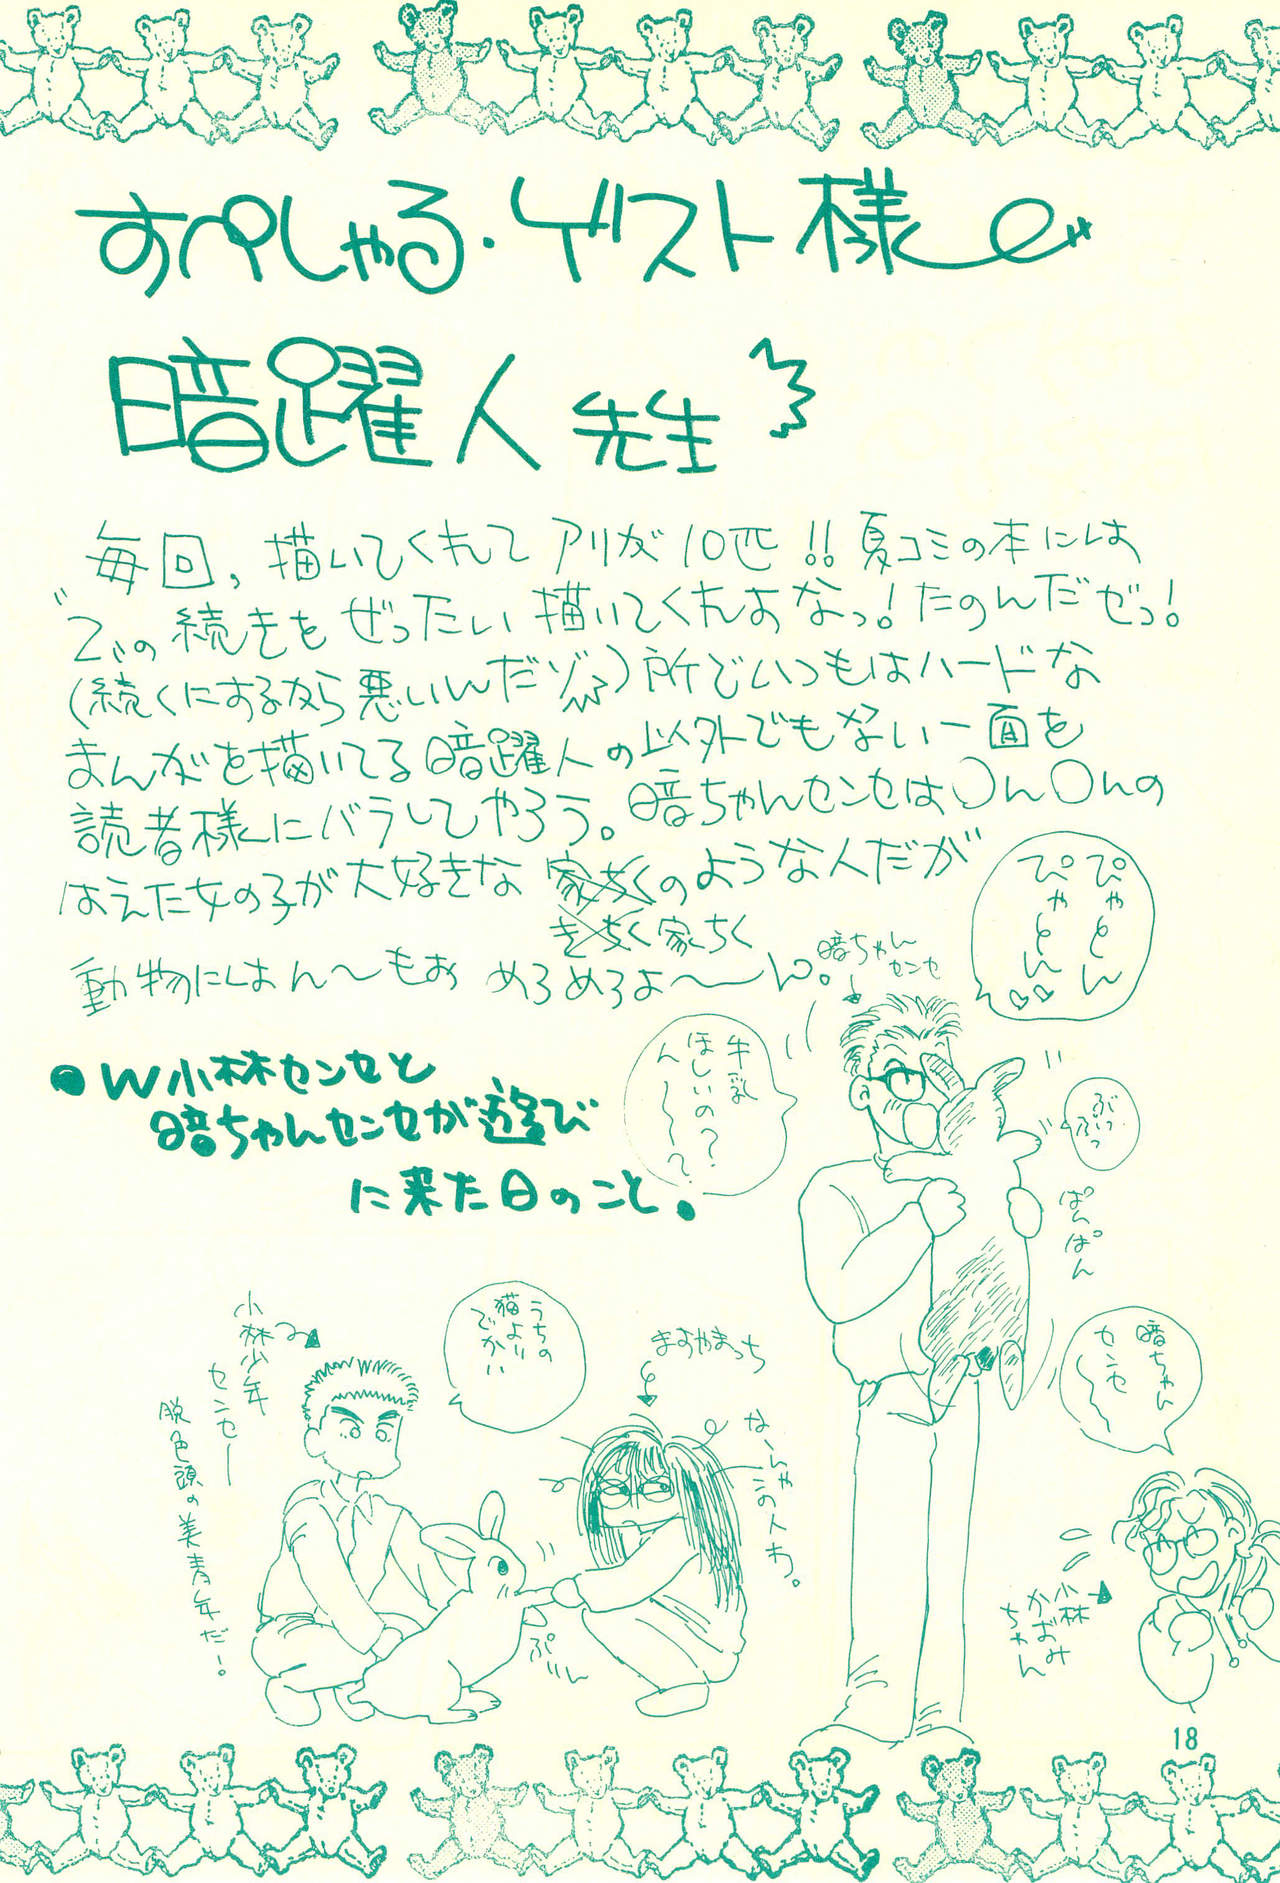 すぺしゃる・ゲスト様
暗躍人 先生
毎回、描いてくれて アリが10匹!! 夏コミの本には
"Z"の続きを ぜったい描いてくれよなっ! たのんだぜっ!
(続くにするなら悪いんだゾ)所でいつもはハードな
まんがを描いてる暗躍人の以外でもない一面を
読者様にバラしてやろう。暗ちゃんセンセは〇ん〇んの
はえた女の子が大好きな
のような人だが
家ちく
動物にはん〜もお めろめろよ〜ん。
暗ちゃん
センセ
ぴゃとん
ぴゃとん♡♡
●W小林センセと
暗ちゃんセンセが遊び
に来た日のこと。
牛乳
ほしいの?
ん〜〜?
ぶっ
ぶっ
ぱんぱん
暗ちゃん
センセ〜
小林
かおみ
ちゃん
うちの
猫より
でかい
ますやまっち
な〜んやこの人わ。
ぷい〜ん
小林少年
センセー
脱色頭の美青年だ!
18